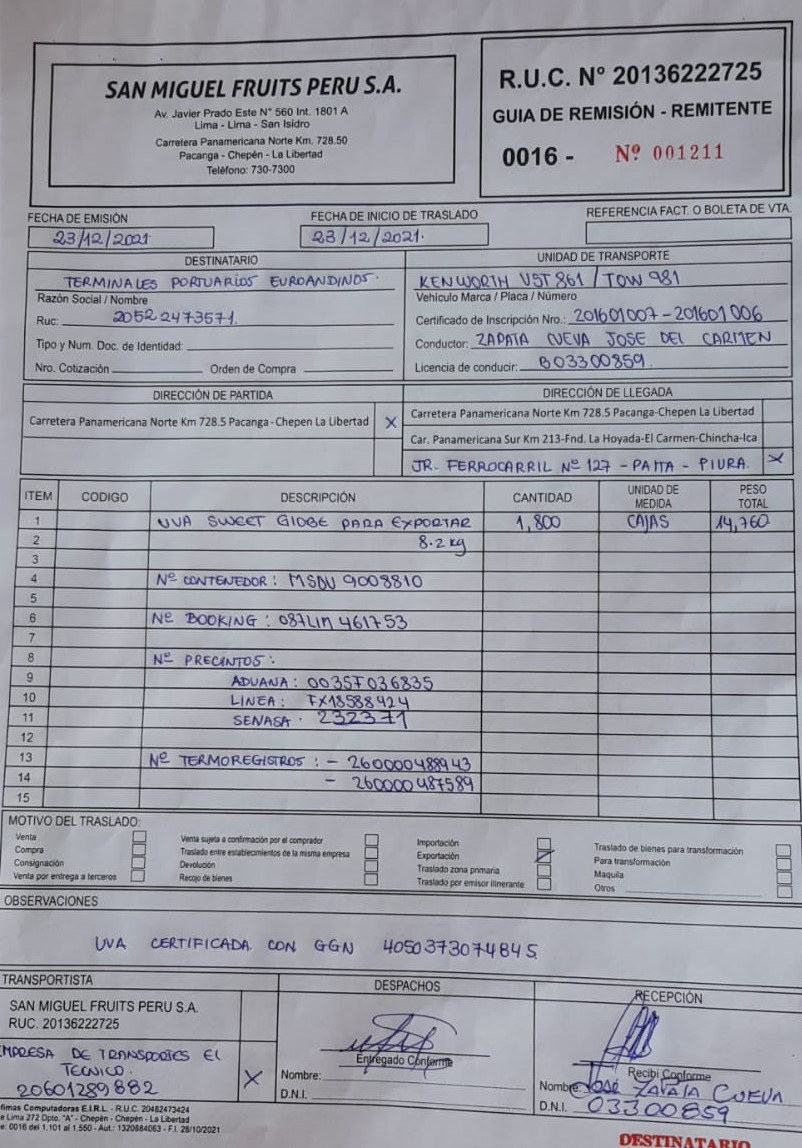 SAN MIGUEL FRUITS PERU S.A.
Av. Javier Prado Este N° 560 Int. 1801 A
Lima - Lima - San Isidro
Carretera Panamericana Norte Km. 728.50
Pacanga - Chepén - La Libertad
Teléfono: 730-7300
R.U.C. N° 20136222725
GUIA DE REMISIÓN - REMITENTE
0016 - Nº 001211
FECHA DE EMISIÓN
23/12/2021
FECHA DE INICIO DE TRASLADO
23/12/2021.
REFERENCIA FACT. O BOLETA DE VTA.
DESTINATARIO
TERMINALES PORTUARIOS EUROANDINOS.
Razón Social / Nombre
Ruc: 20522473571.
Tipo y Num. Doc. de Identidad:
Nro. Cotización Orden de Compra
UNIDAD DE TRANSPORTE
KENWORTH V5T 861 / TOW 981
Vehículo Marca / Placa / Número
Certificado de Inscripción Nro.: 201601007-201601006
Conductor: ZAPATA CUEVA JOSE DEL CARMEN
Licencia de conducir: B03300859.
DIRECCIÓN DE PARTIDA
Carretera Panamericana Norte Km 728.5 Pacanga-Chepen La Libertad X
DIRECCIÓN DE LLEGADA
Carretera Panamericana Norte Km 728.5 Pacanga-Chepen La Libertad
Car. Panamericana Sur Km 213-Fnd. La Hoyada-El Carmen-Chincha-Ica
JR. FERROCARRIL Nº 127 - PAITA - PIURA. X
ITEM CODIGO DESCRIPCIÓN CANTIDAD UNIDAD DE MEDIDA PESO TOTAL
1 UVA SWEET GlOBE PARA EXPORTAR 1,800 CAJAS 14,760
2 8.2 kg
3
4 Nº CONTENEDOR: MSDU 9008810
5
6 Nº BOOKING: 087LIM461753
7
8 Nº PRECINTOS:
9 ADUANA: 00357036835
10 LINEA: FX18588424
11 SENASA. 232371
12
13 Nº TERMOREGISTROS: - 260000488943
14 - 260000487589
15
MOTIVO DEL TRASLADO:
Venta
Compra
Consignación
Venta por entrega a terceros
Venta sujeta a confirmación por el comprador
Traslado entre establecimientos de la misma empresa
Devolución
Recojo de bienes
Importación
Exportación
Traslado zona primaria
Traslado por emisor itinerante
Traslado de bienes para transformación
Para transformación
Maquila
Otros
OBSERVACIONES
UVA CERTIFICADA CON GGN 4050373074845
TRANSPORTISTA
SAN MIGUEL FRUITS PERU S.A.
RUC. 20136222725
MPRESA DE TRANSPORTES El
TECNICO.
20601289882 X
DESPACHOS
Entregado Conforme
Nombre:
D.N.I.
RECEPCIÓN
Recibi Conforme
Nombre: José ZAPATA CUEVA
D.N.I. 03300859
fimas Computadoras E.I.R.L. - R.U.C. 20482473424
e Lima 272 Dpto. "A" - Chepén - Chepén - La Libertad
e: 0016 del 1,101 al 1,550 - Aut.: 1320884063 - F.I. 28/10/2021
DESTINATARIO